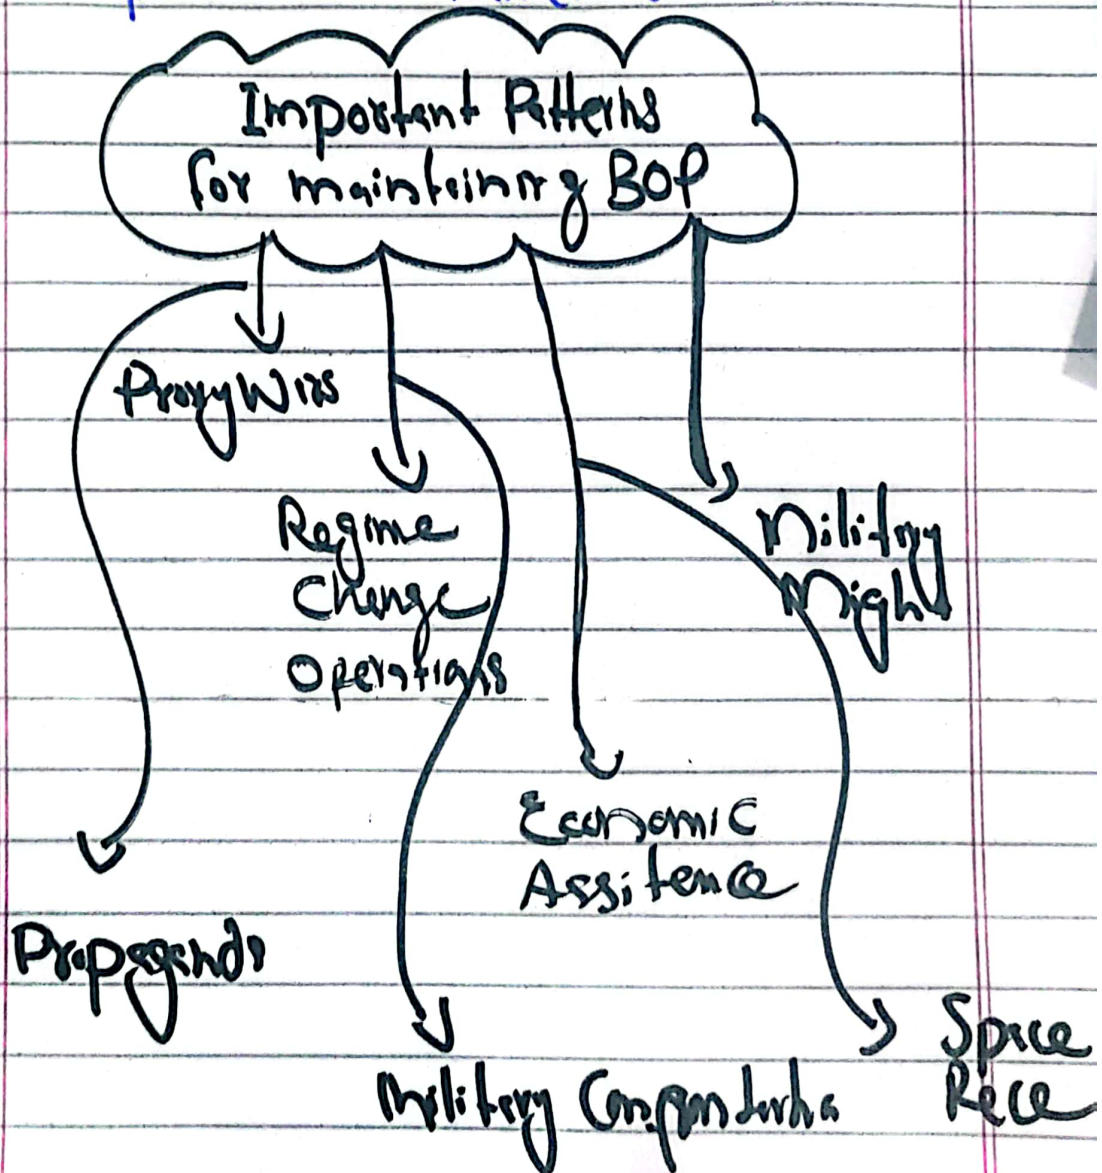 Important Patterns
for maintaining BOP
Proxy Wars
Regime
Change
Operations
Military
Might
Economic
Assitence
Propaganda
Space
Race
Military